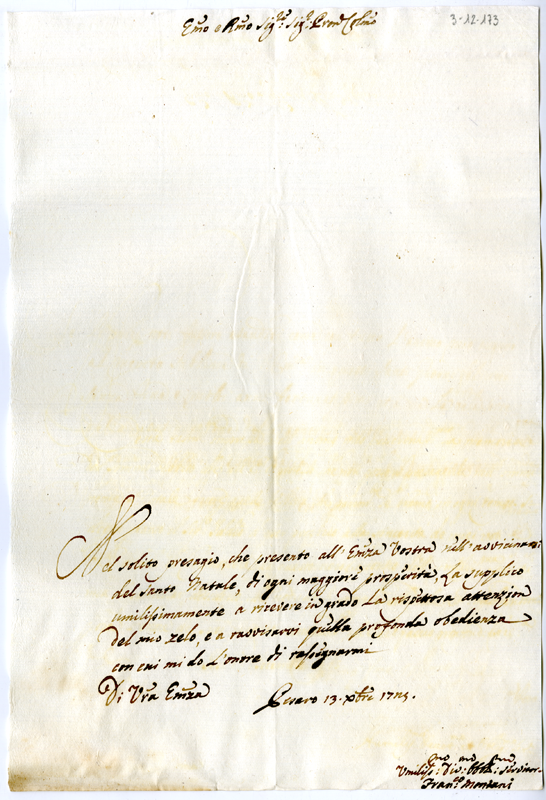 Emo e Rmo Sig.re Sig.re Pron Colmo
3-12-173
Nel solito presagio, che presento all'Emza Vostra nell'avvicinarsi
del Santo Natale, di ogni maggiore prosperità, La supplico
umilissimamente a ricevere in grado La rispettosa attenzion
del mio zelo, e a ravvisarvi quella profonda obedienza
con cui mi do L'onore di rassegnarmi
Di Vra Emza
Pesaro 13. Xbre 1725.
Umiliss: Div: Obb: Servitor
Fran.co Montani